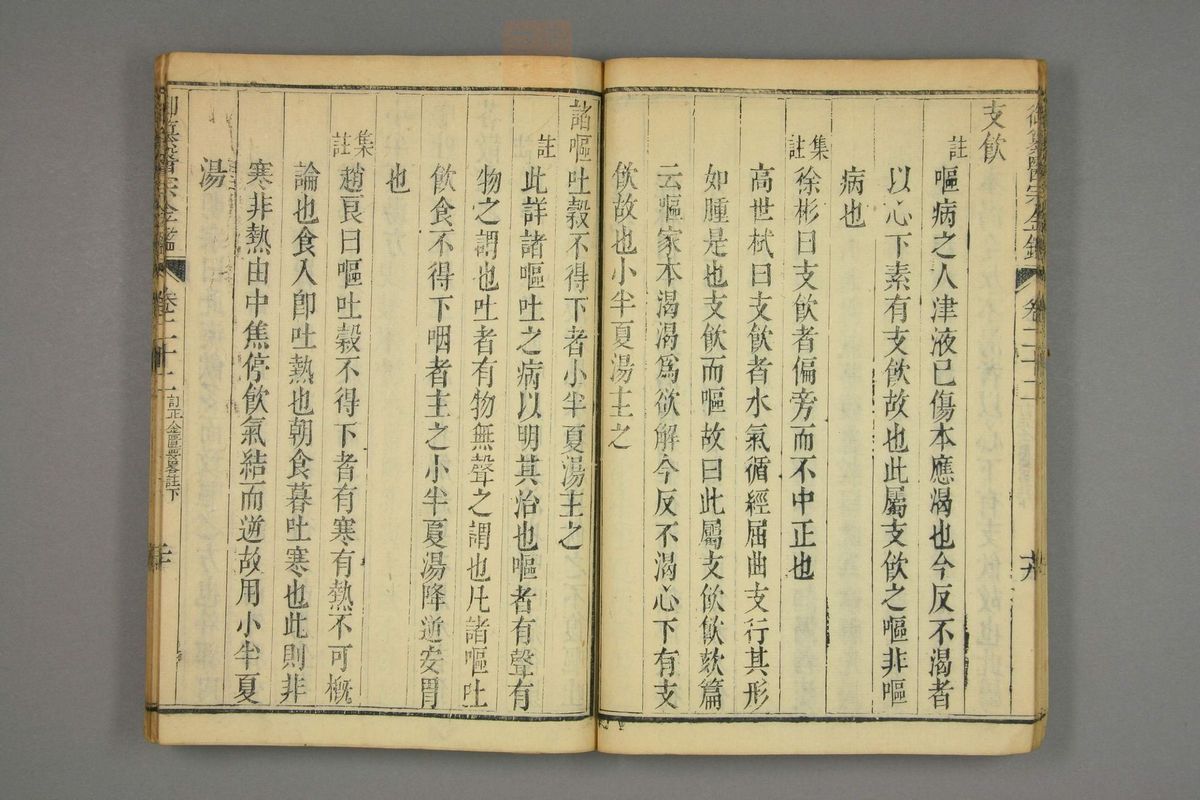 御纂醫宗金鑑 卷二十二
支飲
註 嘔病之人津液已傷本應渴也今反不渴者
以心下素有支飲故也此屬支飲之嘔非嘔
病也
集註 徐彬曰支飲者偏旁而不中正也
高世栻曰支飲者水氣循經屈曲支行其形
如腫是也支飲而嘔故曰此屬支飲飲欬篇
云嘔家本渴渴爲欲解今反不渴心下有支
飲故也小半夏湯主之
諸嘔吐穀不得下者小半夏湯主之
註 此詳諸嘔吐之病以明其治也嘔者有聲有
物之謂也吐者有物無聲之謂也凡諸嘔吐
飲食不得下咽者主之小半夏湯降逆安胃
也
集註 趙良曰嘔吐穀不得下者有寒有熱不可概
論也食入卽吐熱也朝食暮吐寒也此則非
寒非熱由中焦停飲氣結而逆故用小半夏
湯
御纂醫宗金鑑 卷二十二 訂正金匱要畧註下